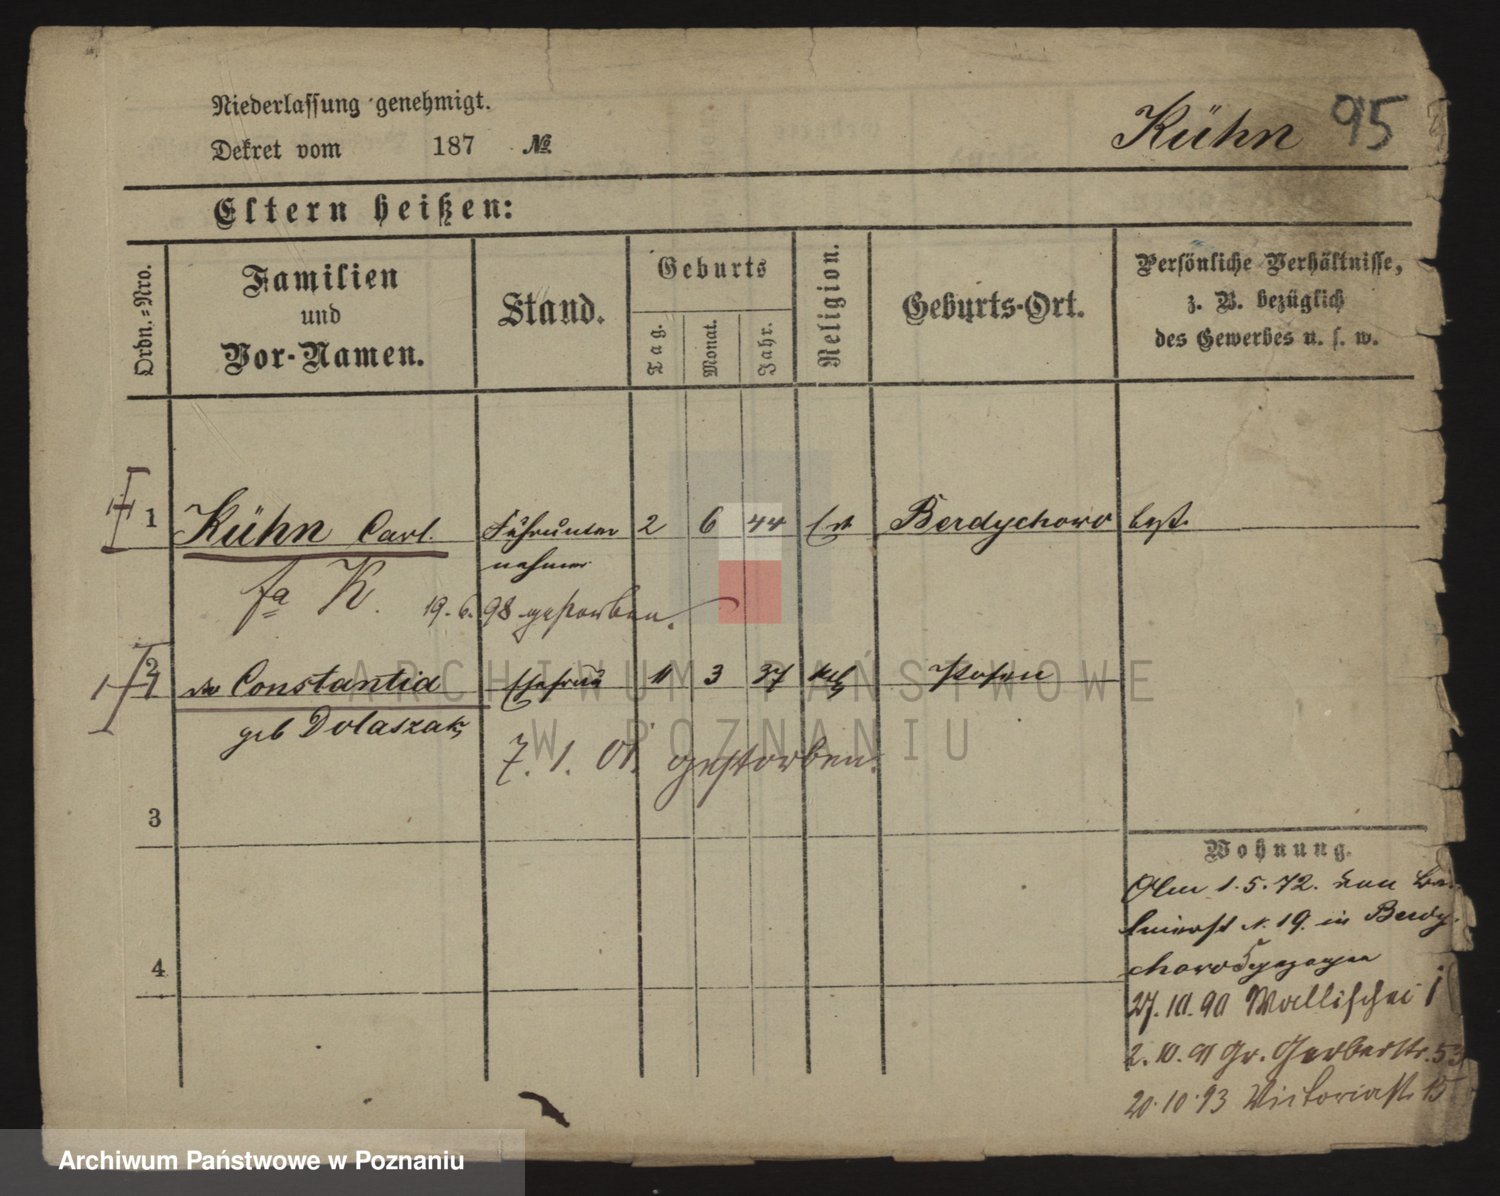 Niederlassung genehmigt.
Kühn 95
Dekret vom 187 №
Eltern heißen:
Ordn.=Nro.
Familien
und
Vor-Namen.
Stand.
Geburts
Tag.
Monat.
Jahr.
Religion.
Geburts-Ort.
Persönliche Verhältnisse,
z. B. bezüglich
des Gewerbes u. s. w.
1 Kühn Carl. Fuhrunter 2 6 44 Berdychowo
nehmer
fa K. 19. 6. 98 gestorben.
2 Constantia Ehefrau 11 3 37 kth Posen
geb Dolaszak
7. 1. 01. gestorben.
3
4
Wohnung.
Am 1. 5. 72. von
N. 19. in Berdy
chowo gezogen
27. 10. 90 Wallischei
2. 10. 91 Gr. Gerberstr. 53
20. 10. 93 Victoriast. 15
ARCHIWUM PAŃSTWOWE
W POZNANIU
Archiwum Państwowe w Poznaniu